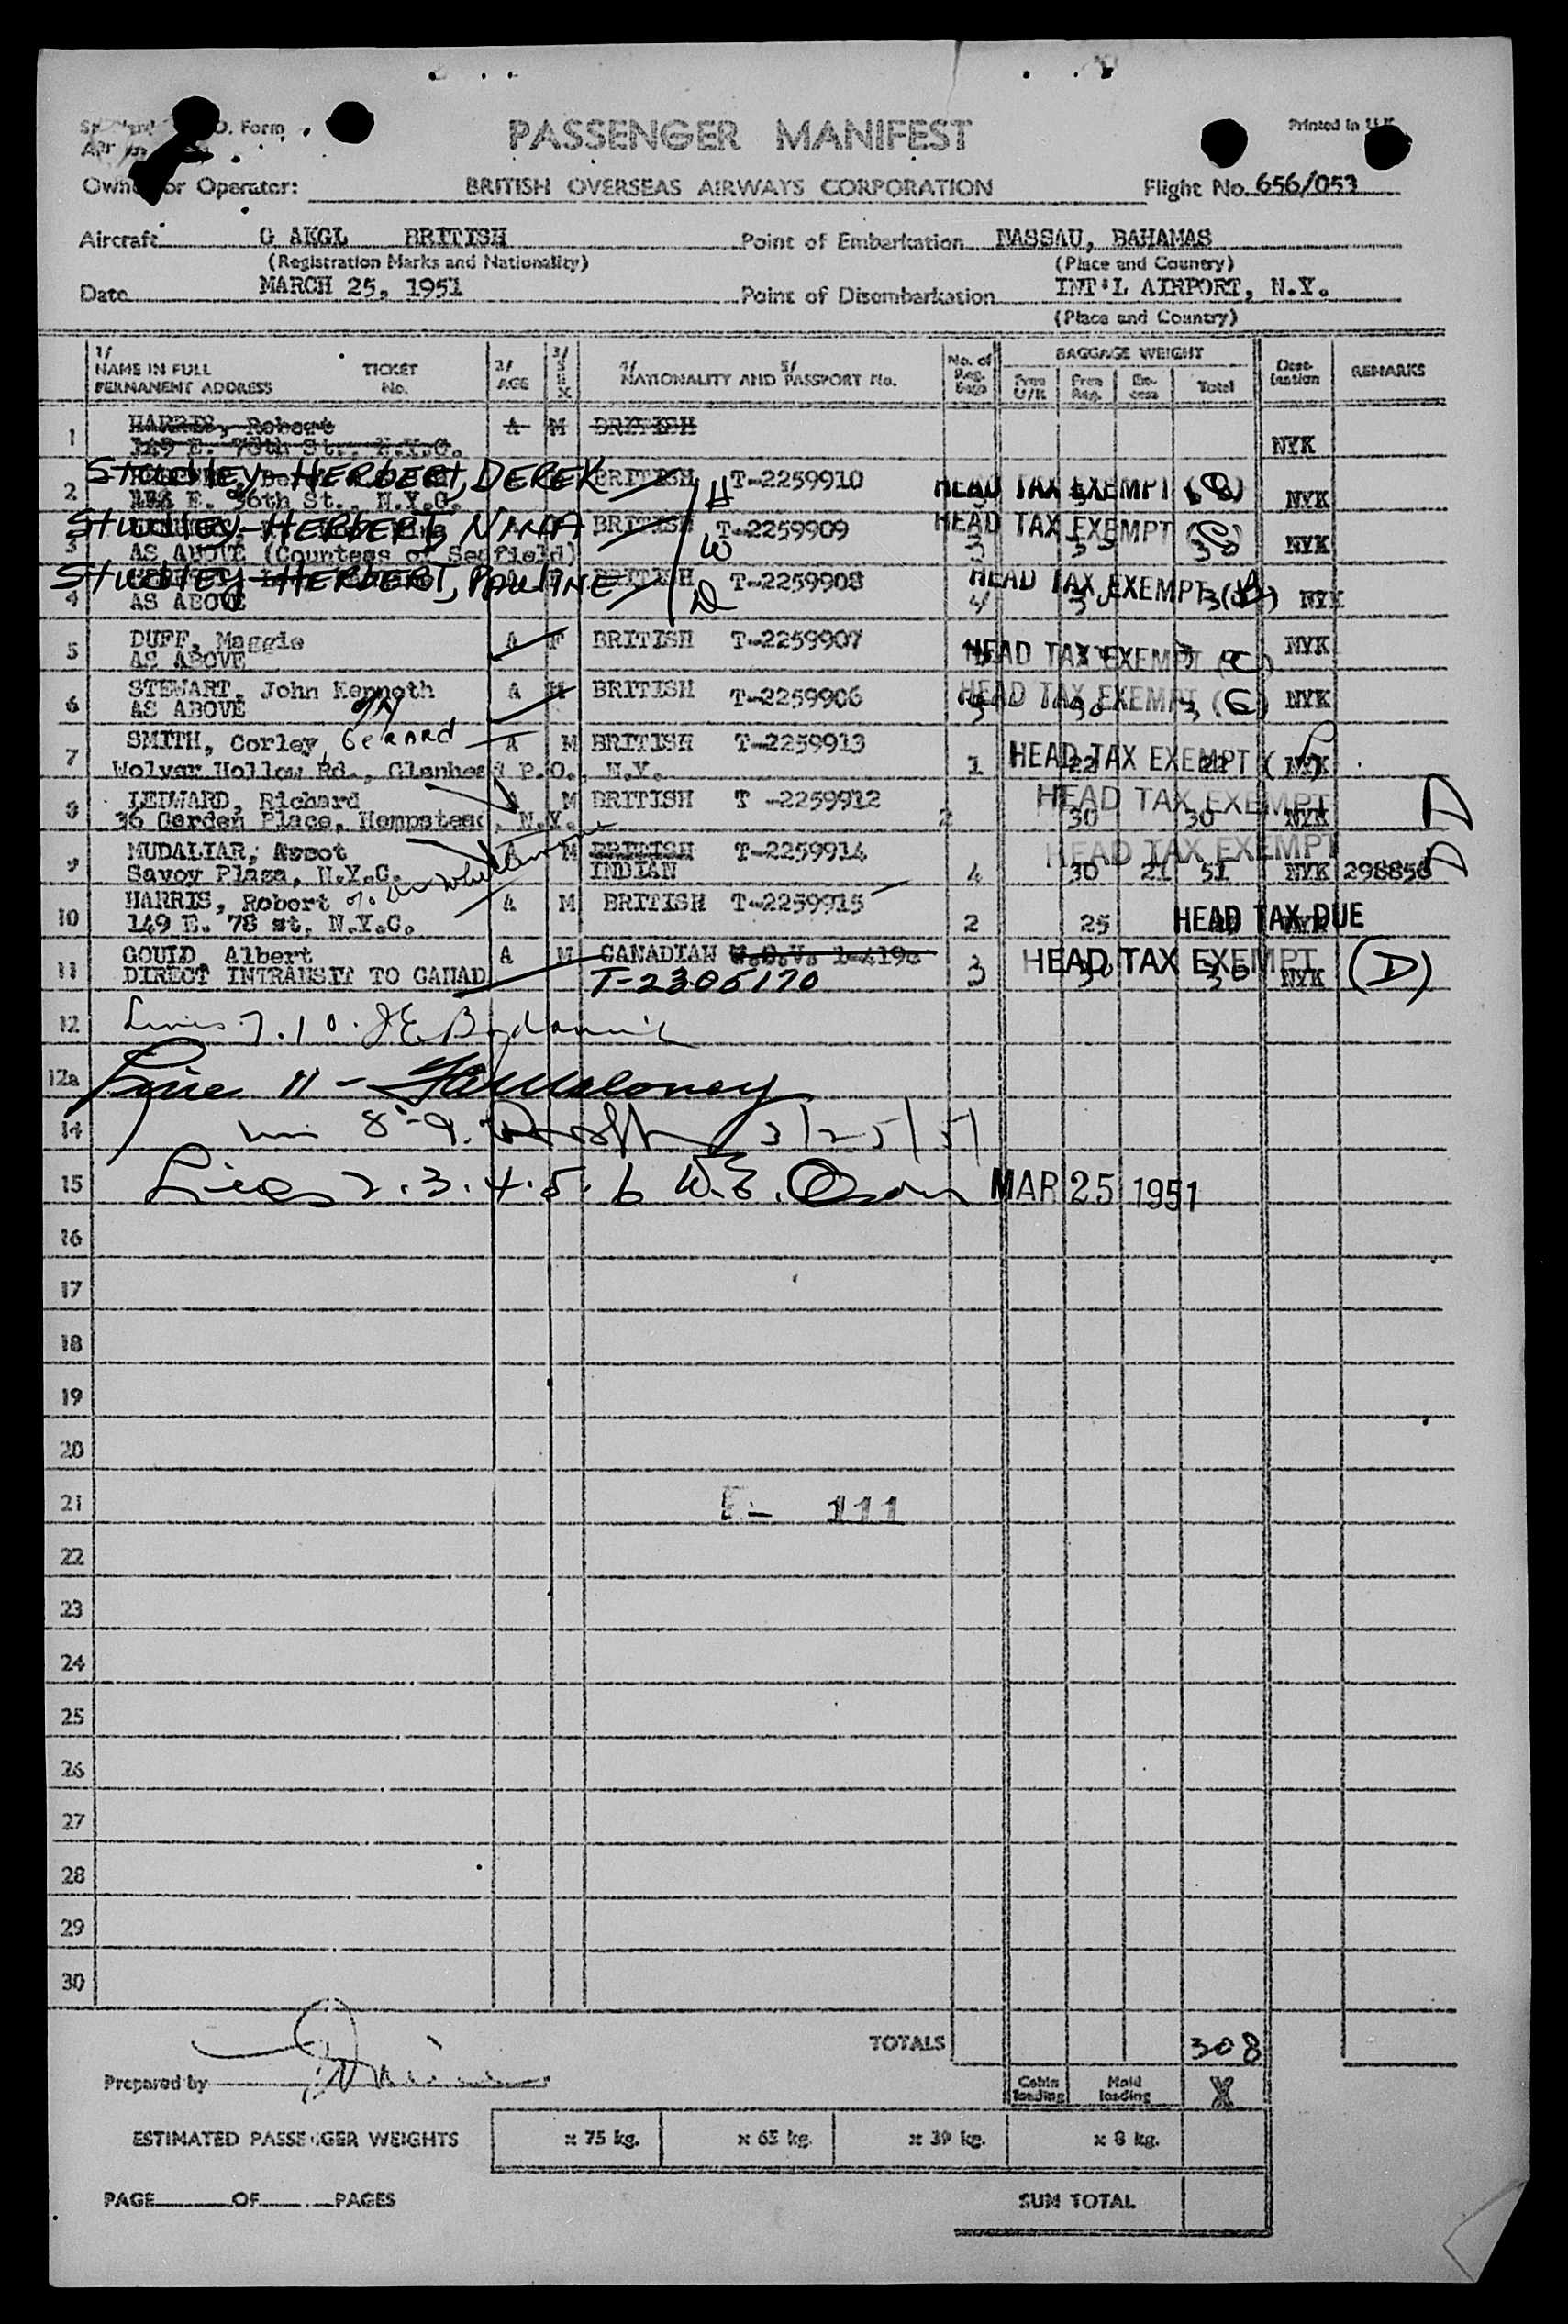 O. Form
PASSENGER MANIFEST
Printed in U.K.
Owner or Operator: BRITISH OVERSEAS AIRWAYS CORPORATION Flight No. 656/053
Aircraft G AKGL BRITISH Point of Embarkation NASSAU, BAHAMAS
(Registration Marks and Nationality) (Place and Country)
Date MARCH 25, 1951 Point of Disembarkation INT'L AIRPORT, N.Y.
(Place and Country)
1/ NAME IN FULL PERMANENT ADDRESS TICKET No. 2/ AGE 3/ SEX 4/ NATIONALITY AND 5/ PASSPORT No. No. of Reg. Bags BAGGAGE WEIGHT Free U/R Free Reg. Ex-cess Total Dest-ination REMARKS
1 HARRIS, Robert A M BRITISH
149 E. 78th St., N.Y.C. NYK
2 STUDLEY HERBERT, DEREK BRITISH T-2259910 H HEAD TAX EXEMPT NYK
E. 36th St., N.Y.C.
STUDLEY HERBERT, NINA BRITISH T-2259909 W HEAD TAX EXEMPT
3 AS ABOVE (Countess of Seafield) 3 NYK
STUDLEY HERBERT, PAULINE BRITISH T-2259908 D HEAD TAX EXEMPT
4 AS ABOVE 4 NYK
5 DUFF, Maggie A F BRITISH T-2259907 HEAD TAX EXEMPT (C) NYK
AS ABOVE
6 STEWART, John Kenneth A M BRITISH T-2259906 HEAD TAX EXEMPT (G) NYK
AS ABOVE
SMITH, Corley, Gerard A M BRITISH T-2259913
7 Wolver Hollow Rd., Glenhead P.O., N.Y. 1 22 HEAD TAX EXEMPT NYK
LEDWARD, Richard A M BRITISH T-2259912 HEAD TAX EXEMPT A
8 36 Garden Place, Hempstead, N.Y. 2 30 30 NYK
MUDALIAR, Assot A M BRITISH T-2259914 HEAD TAX EXEMPT A
9 Savoy Plaza, N.Y.C. INDIAN 4 30 21 51 NYK 298856
HARRIS, Robert A M BRITISH T-2259915
10 149 E. 78 st. N.Y.C. 2 25 HEAD TAX DUE
GOULD, Albert A M CANADIAN
11 DIRECT INTRANSIT TO CANAD T-2305170 3 30 HEAD TAX EXEMPT 30 NYK (D)
12 Lines 7.10.
12a Line 11 - Maloney
14 8-9. 3/25/51
15 Lines 2.3.4.5.6 W.E. MAR 25 1951
16
17
18
19
20
21 111
22
23
24
25
26
27
28
29
30
TOTALS 308
Prepared by Cabin loading Hold loading X
ESTIMATED PASSENGER WEIGHTS x 75 kg. x 65 kg. x 39 kg. x 8 kg.
PAGE OF PAGES SUM TOTAL